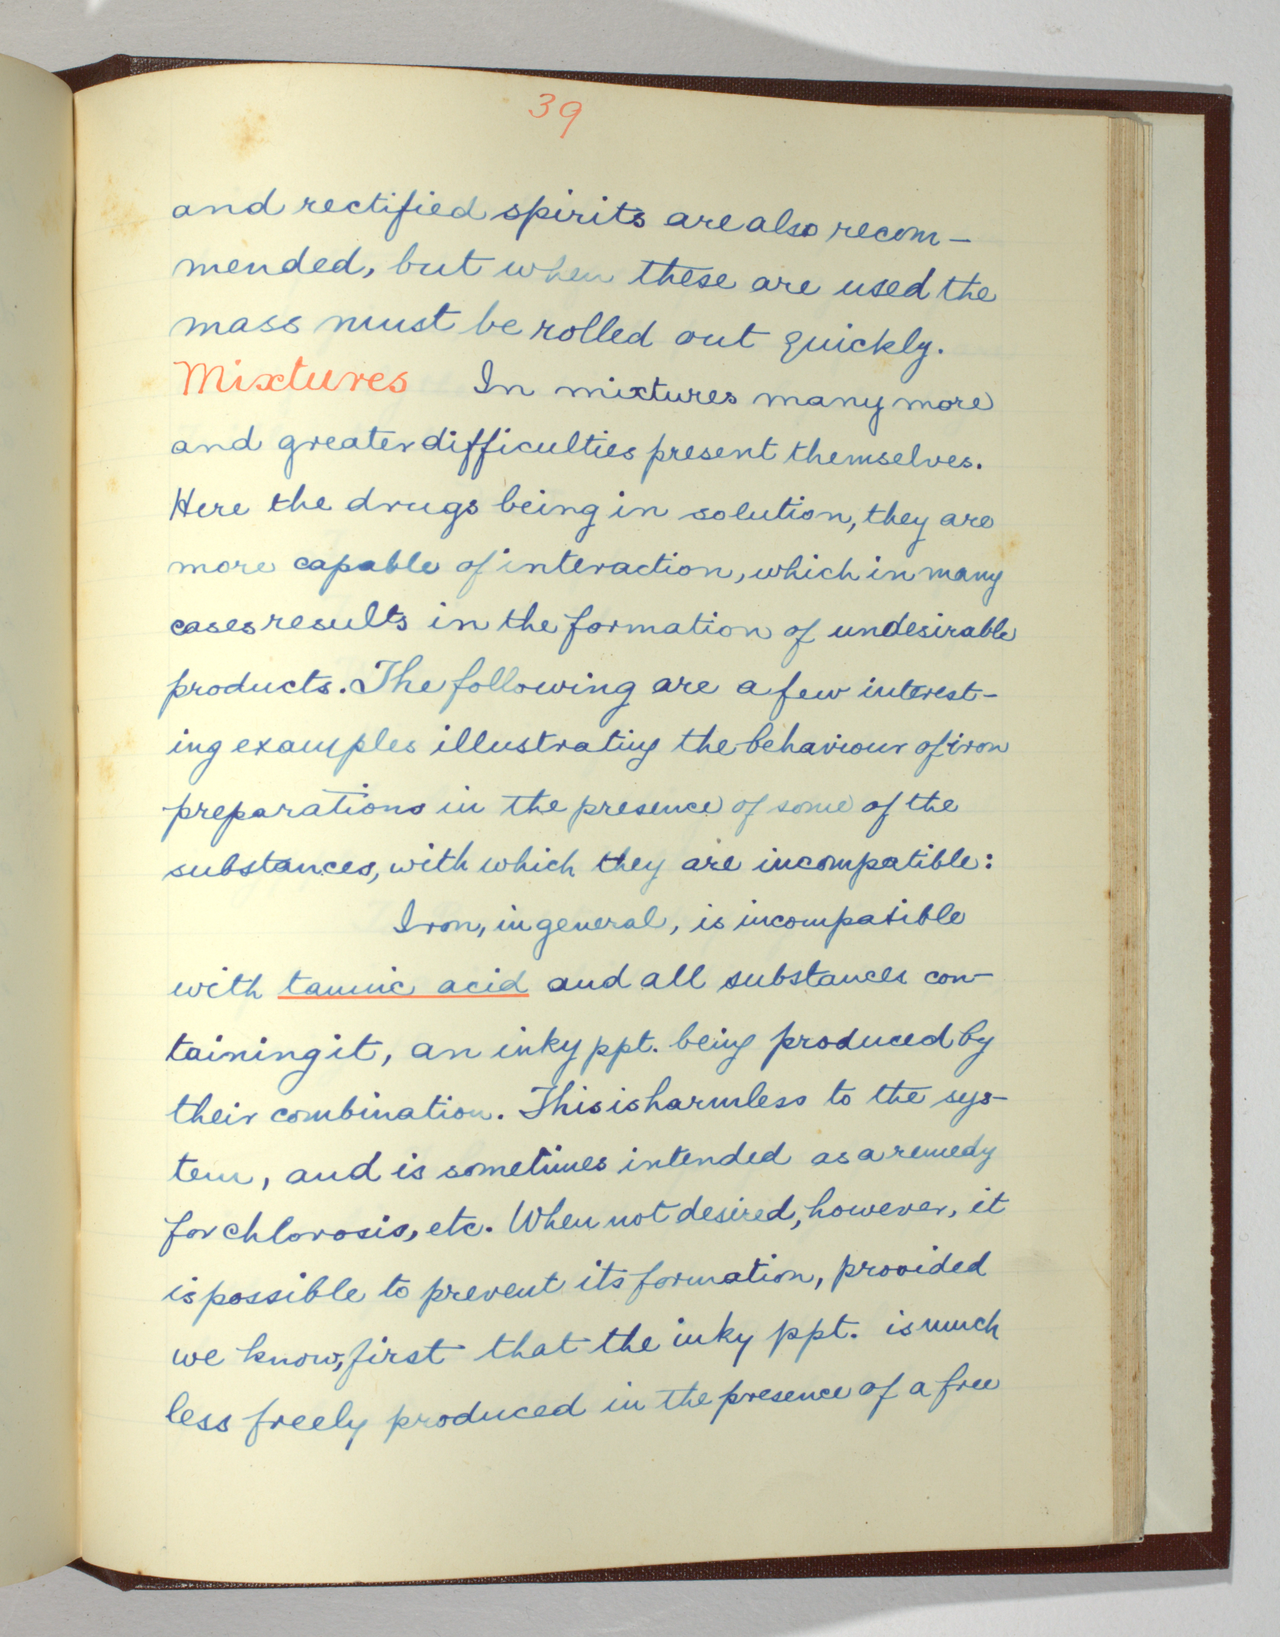 39
and rectified spirits are also recom-
mended, but when these are used the
mass must be rolled out quickly.
Mixtures In mixtures many more
and greater difficulties present themselves.
Here the drugs being in solution, they are
more capable of interaction, which in many
cases results in the formation of undesirable
products. The following are a few interest-
ing examples illustrating the behaviour of iron
preparations in the presence of some of the
substances, with which they are incompatible:
Iron, in general, is incompatible
with tannic acid and all substances con-
taining it, an inky ppt. being produced by
their combination. This is harmless to the sys-
tem, and is sometimes intended as a remedy
for chlorosis, etc. When not desired, however, it
is possible to prevent its formation, provided
we know, first that the inky ppt. is much
less freely produced in the presence of a free